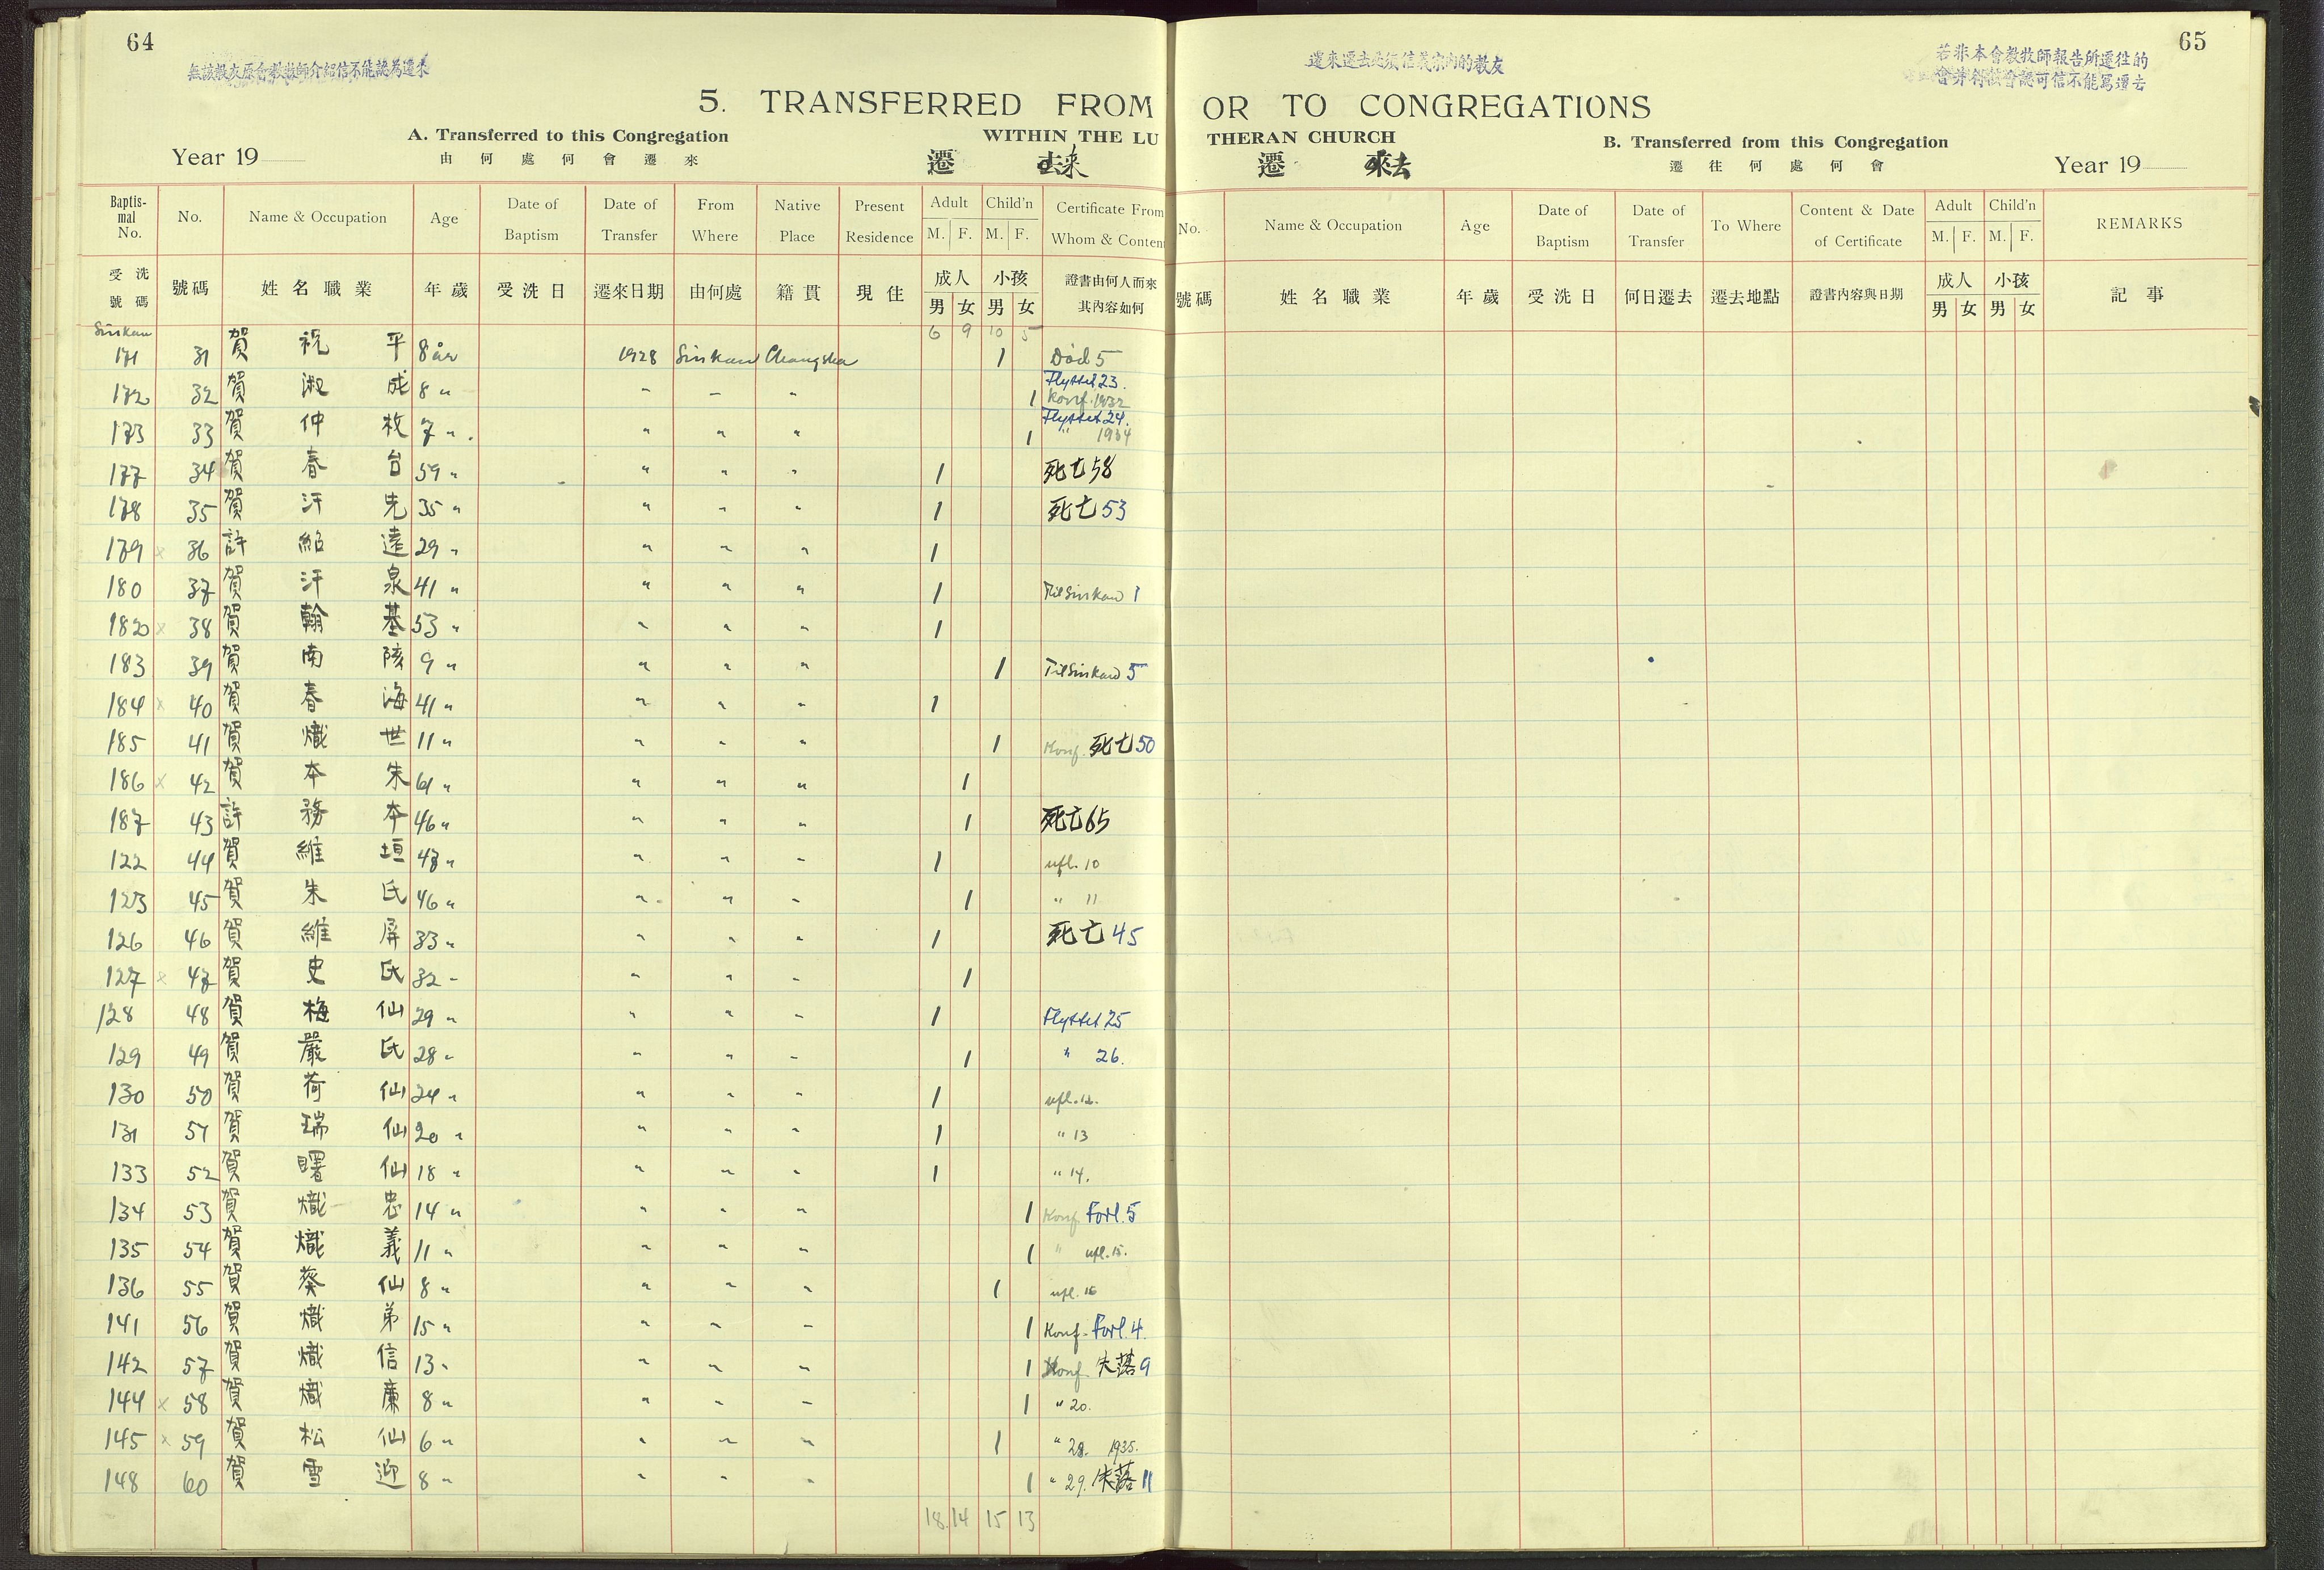 64
無該教友原會教牧師介紹信不能認為遷來
遷來遷去必須信義宗內的教友
若非本會教牧師報告所遷往的
65
5. TRANSFERRED FROM OR TO CONGREGATIONS
A. Transferred to this Congregation
WITHIN THE LUTHERAN CHURCH
B. Transferred from this Congregation
Year 19
由何處何會遷來
遷 來
遷 去
遷往何處何會
Year 19
Baptismal No. No. Name & Occupation Age Date of Baptism Date of Transfer From Where Native Place Present Residence Adult M. F. Child'n M. F. Certificate From Whom & Conten
No. Name & Occupation Age Date of Baptism Date of Transfer To Where Content & Date of Certificate Adult M. F. Child'n M. F. REMARKS
受洗號碼 號碼 姓名職業 年歲 受洗日 遷來日期 由何處 籍貫 現住 成人 男 女 小孩 男 女 證書由何人而來其內容如何
號碼 姓名職業 年歲 受洗日 何日遷去 遷去地點 證書內容與日期 成人 男 女 小孩 男 女 記事
Sinkau 6 9 10 5
171 31 賀祝平 8 år 1928 Sinkau Changsha 1 Död 5
172 32 賀淑成 8 " " " " 1 Flyttet 23. Konf. 1932
173 33 賀仲枚 7 " " " " 1 Flyttet 24. " 1934
177 34 賀春台 59 " " " " 1 死亡 58
178 35 賀汗先 35 " " " " 1 死亡 53
179 x 36 許紹遠 29 " " " " 1
180 37 賀汗泉 41 " " " " 1 Til Sinkau 1
182 x 38 賀翰基 53 " " " " 1
183 39 賀南陔 9 " " " " 1 Til Sinkau 5
184 x 40 賀春海 41 " " " " 1
185 41 賀熾世 11 " " " " 1 Konf. 死亡 50
186 x 42 賀本朱 61 " " " " 1
187 43 許務本 46 " " " " 1 死亡 65
122 44 賀維垣 47 " " " " 1 ufl. 10
123 45 賀朱氏 46 " " " " 1 " 11
126 46 賀維屏 33 " " " " 1 死亡 45
127 x 47 賀史氏 32 " " " " 1
128 48 賀梅仙 29 " " " " 1 Flyttet 25
129 49 賀嚴氏 28 " " " " 1 " 26.
130 50 賀荷仙 24 " " " " 1 ufl. 12.
131 51 賀瑞仙 20 " " " " 1 " 13
133 52 賀曙仙 18 " " " " 1 " 14.
134 53 賀熾忠 14 " " " " 1 Konf. Forl. 5
135 54 賀熾義 11 " " " " 1 " ufl. 15.
136 55 賀葵仙 8 " " " " 1 ufl. 16
141 56 賀熾弟 15 " " " " 1 Konf. Forl. 4.
142 57 賀熾信 13 " " " " 1 Konf. 失落 9
144 x 58 賀熾廉 8 " " " " 1 " 20.
145 x 59 賀松仙 6 " " " " 1 " 28. 1935.
148 60 賀雪迎 8 " " " " 1 " 29. 失落 11
18 14 15 13